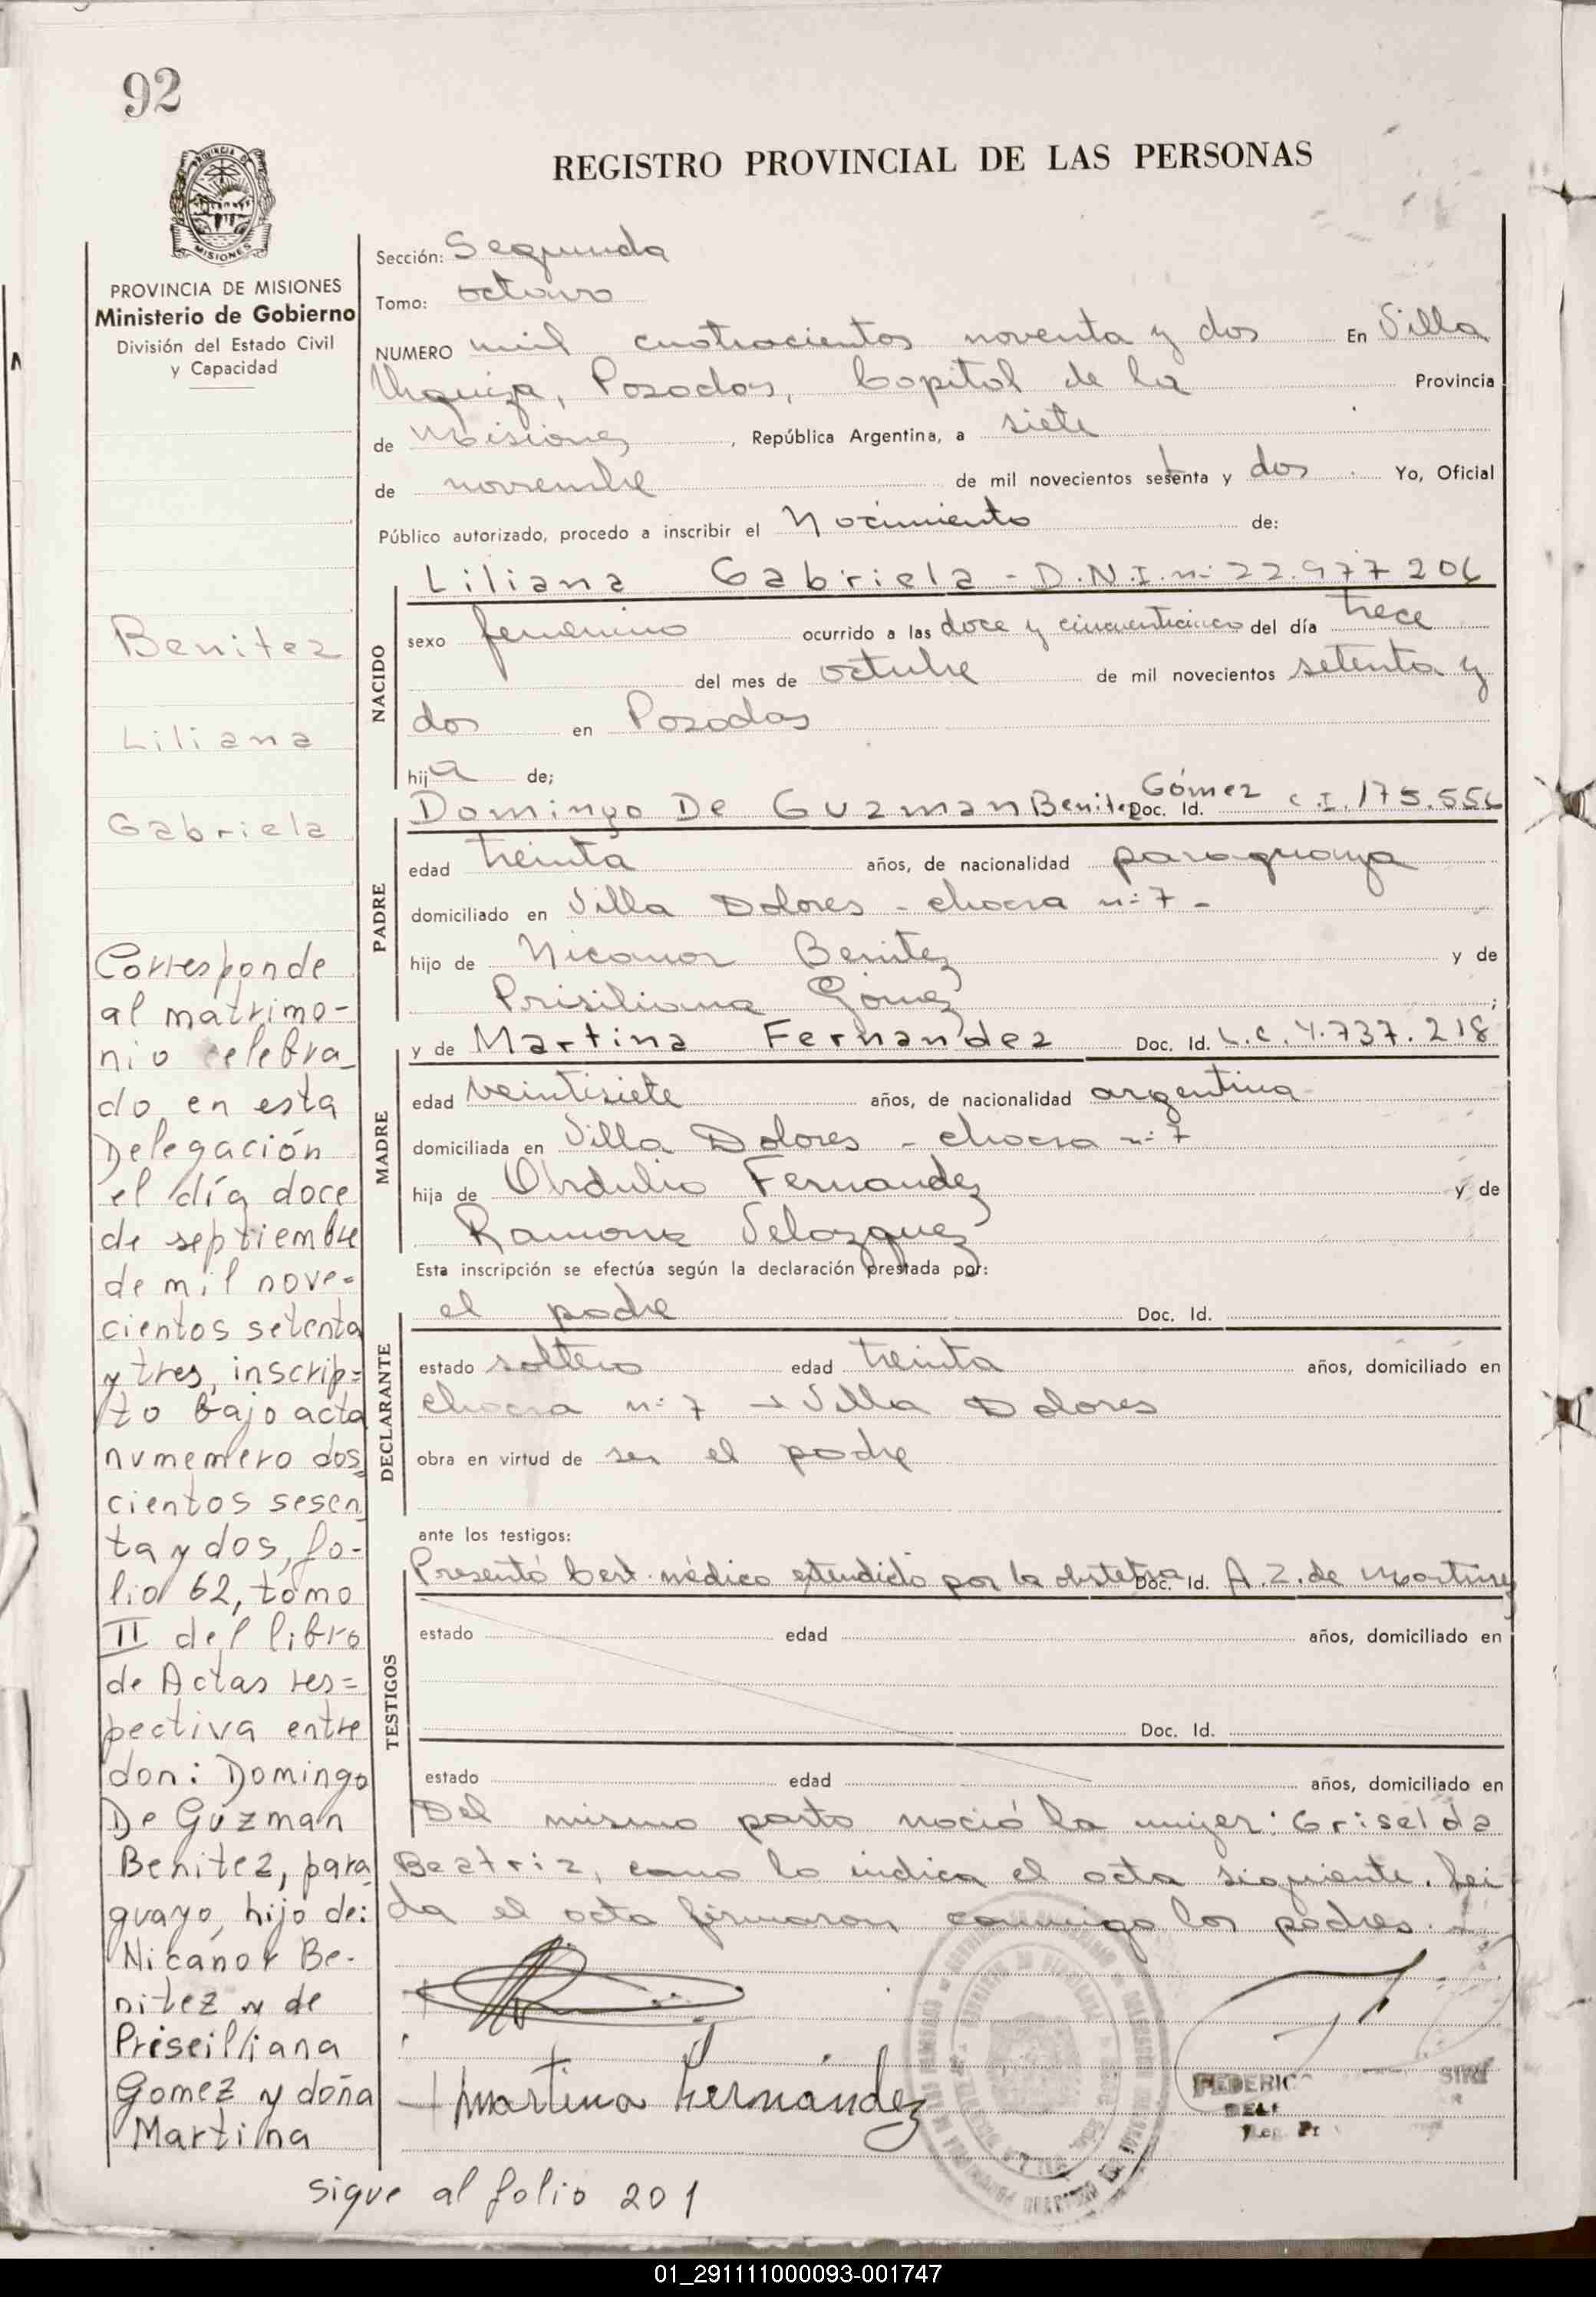 92
REGISTRO PROVINCIAL DE LAS PERSONAS
MISIONES
PROVINCIA DE MISIONES
Ministerio de Gobierno
División del Estado Civil
y Capacidad
Benitez
Liliana
Gabriela
Corresponde
al matrimo-
nio celebra-
do en esta
Delegación
el día doce
de septiembre
de mil nove-
cientos setenta
y tres, inscrip=
to bajo acta
numemero dos
cientos sesen
ta y dos, fo-
lio 62, tomo
II del libro
de Actas res=
pectiva entre
don: Domingo
De Guzman
Benitez, para
guayo, hijo de:
Nicanor Be-
nitez y de
Priscilliana
Gomez y doña
Martina
Sección: Segunda
Tomo: octavo
NUMERO mil cuatrocientos noventa y dos En Villa
Urquiza, Posadas, Capital de la Provincia
de Misiones, República Argentina, a siete
de noviembre de mil novecientos setenta y dos. Yo, Oficial
Público autorizado, procedo a inscribir el Nacimiento de:
NACIDO
Liliana Gabriela - D.N.I. n: 22.977206
sexo femenino ocurrido a las doce y cincuenticinco del día trece
del mes de octubre de mil novecientos setenta y
dos en Posadas
hija de;
Gómez
PADRE
Domingo De Guzman Benitez Doc. Id. C.I. 175.556
edad treinta años, de nacionalidad paraguaya
domiciliado en Villa Dolores - chacra n: 7 -
hijo de Nicanor Benitez y de
Prisiliana Gómez ;
MADRE
y de Martina Fernandez Doc. Id. L.C. 4.737.218
edad veintisiete años, de nacionalidad argentina
domiciliada en Villa Dolores - chacra n: 7
hija de Obdulio Fernandez y de
Ramona Velazquez
Esta inscripción se efectúa según la declaración prestada por:
DECLARANTE
el padre Doc. Id.
estado soltero edad treinta años, domiciliado en
chacra n: 7 - Villa Dolores
obra en virtud de ser el padre
ante los testigos:
TESTIGOS
Presentó Cert. médico extendido por la obstetra Doc. Id. A. Z. de Martinez
estado edad años, domiciliado en
Doc. Id.
estado edad años, domiciliado en
Del mismo parto nació la mujer: Griselda
Beatriz, como lo indica el acta siguiente. Lei
da el acta firmaron conmigo los padres.
Martina Fernández
FEDERICO
sigue al folio 201
01_291111000093-001747